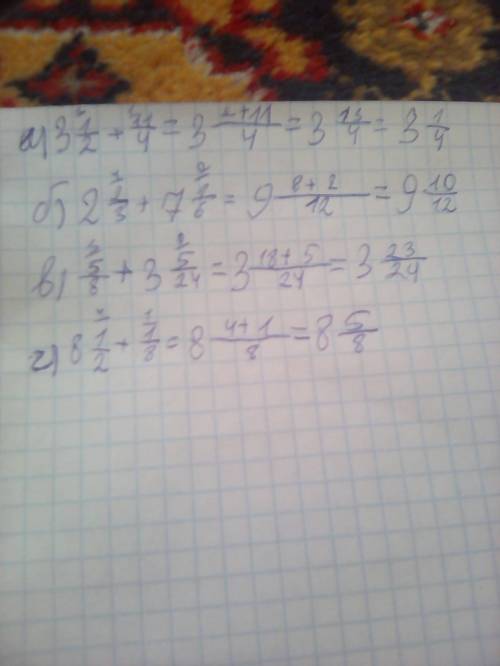 а) 3 1/2 + 11/4 = 3 (2+11)/4 = 3 13/4 = 3 1/4
б) 2 2/3 + 7 1/6 = 9 (8+2)/12 = 9 10/12
в) 5/8 + 3 5/24 = 3 (18+5)/24 = 3 23/24
г) 8 1/2 + 1/8 = 8 (4+1)/8 = 8 5/8